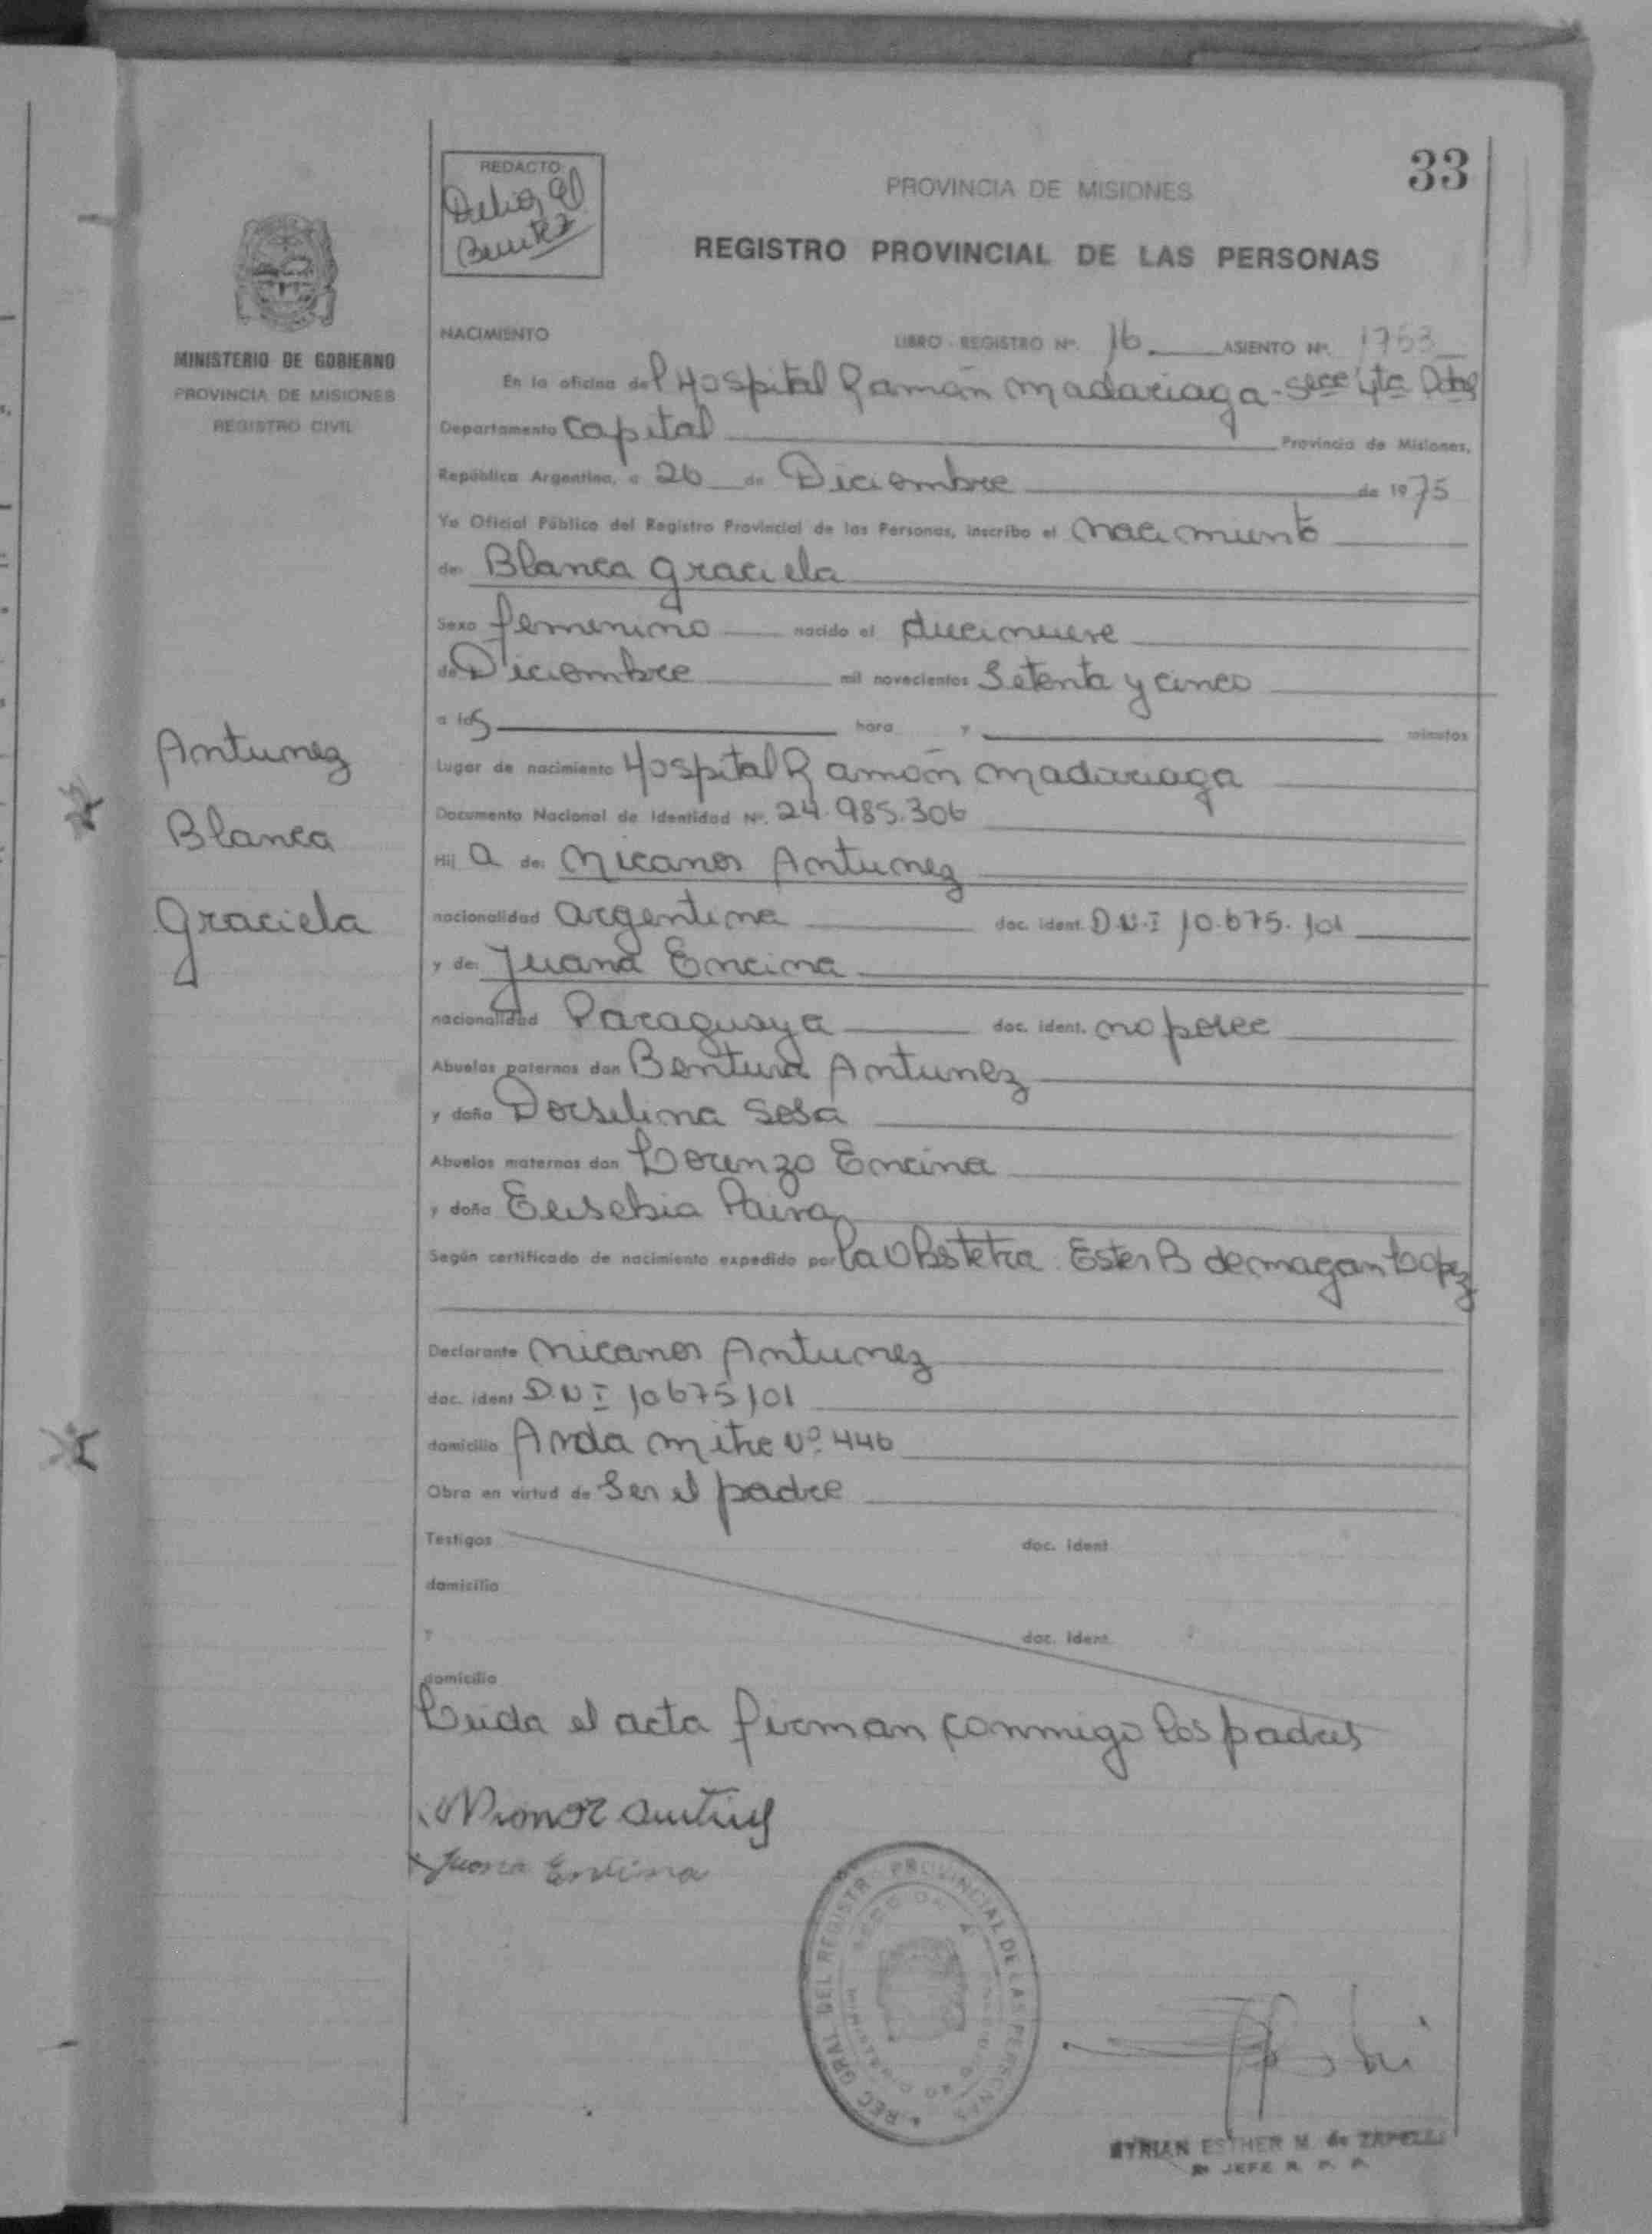 33
REDACTO
Benitez
PROVINCIA DE MISIONES
REGISTRO PROVINCIAL DE LAS PERSONAS
MINISTERIO DE GOBIERNO
PROVINCIA DE MISIONES
REGISTRO CIVIL
Antunez
Blanca
Graciela
NACIMIENTO LIBRO - REGISTRO Nº. 16 ASIENTO Nº. 1763
En la oficina del Hospital Ramón Madariaga - Secc 4ta
Departamento Capital Provincia de Misiones,
República Argentina, a 26 de Diciembre de 1975
Yo Oficial Público del Registro Provincial de las Personas, inscribo el Nacimiento
de: Blanca Graciela
Sexo femenino nacido el diecinueve
de Diciembre mil novecientos Setenta y cinco
a las hora y minutos
Lugar de nacimiento Hospital Ramón Madariaga
Documento Nacional de Identidad Nº. 24.985.306
Hij a de: Nicanor Antunez
nacionalidad argentina doc. ident. D.N.I 10.675.101
y de: Juana Encina
nacionalidad Paraguaya doc. ident. no posee
Abuelos paternos don Bentura Antunez
y doña Dorselina Sosa
Abuelos maternos don Lorenzo Encina
y doña Eusebia Paiva
Según certificado de nacimiento expedido por la Obstetra Ester B de
Declarante Nicanor Antunez
doc. ident D.N.I 10675101
domicilio Avda Mitre Nº 446
Obra en virtud de Ser el padre
Testigos doc. ident
domicilio
y doc. ident.
domicilio
Leida el acta firman conmigo los padres
Juana Encina
REG GRAL DEL REGISTRO PROVINCIAL DE LAS PERSONAS
MYRIAN ESTHER M. de ZAPELLI
JEFE R. P. P.